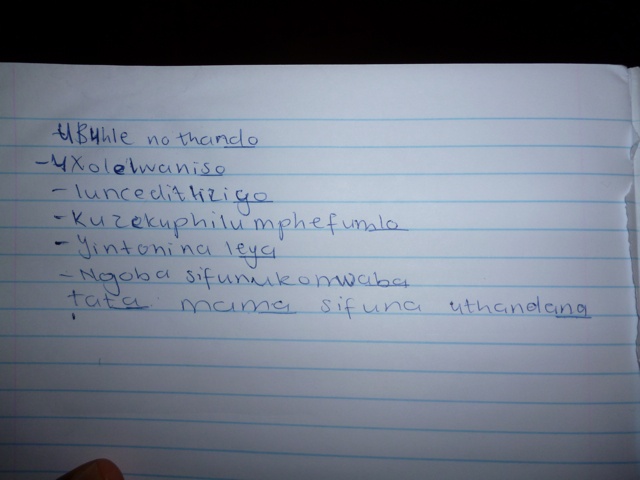 uBuhle no thando
-uXolelwaniso
-luncedithizigo
-Kuzekuphilumphefumlo
-Yintonina leya
-Ngoba sifunukonwaba
tata mama sifuna uthandana